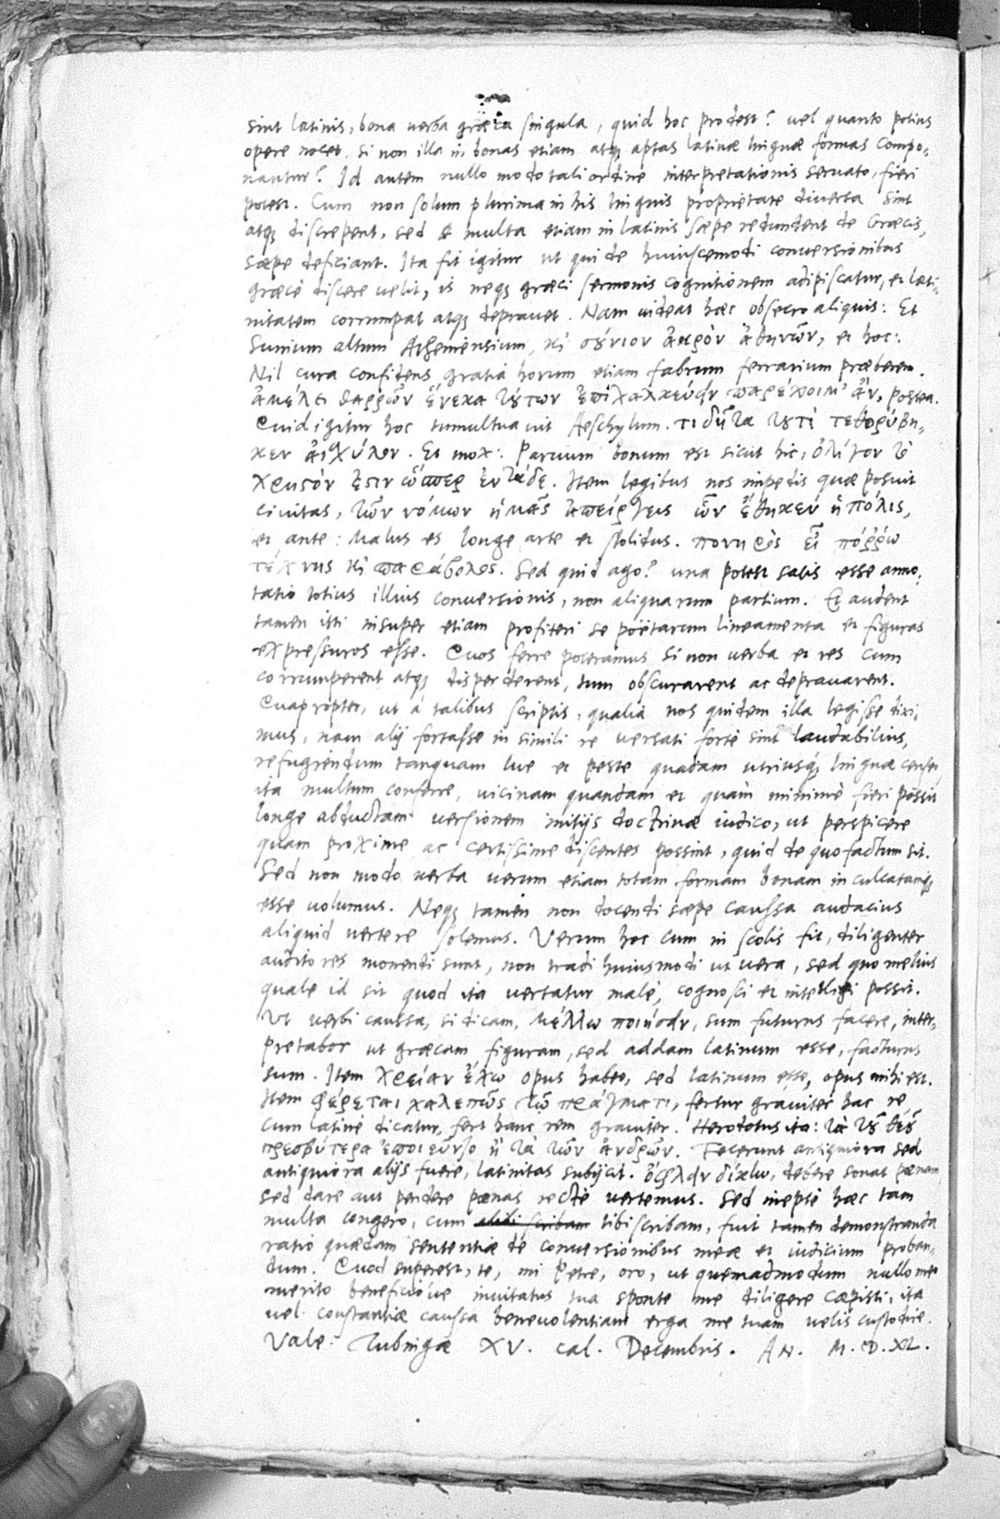 sint latinis, bona verba græca singula, quid hoc prodest? vel quanto potius
opere nocet, si non illa in bonas etiam atq; aptas latinæ linguæ formas compo-
nantur? Id autem nullo modo tali ordine interpretationis servato, fieri
potest. Cum non solum plurima in his linguis proprietate diversa sint
atq; discrepent, sed et multa etiam in latinis sæpe redundent de Græcis,
sæpe deficiant. Ita fit igitur ut qui de huiuscemodi conversionibus
græcè discere velit, is neq; græci sermonis cognitionem adipiscatur, et lati-
nitatem corrumpat atq; depravet. Nam videat hæc obsecro aliquis: Et
Sunium altum Atheniensium, κὶ σούνιον ἄκρον ἀθηνῶν, et hoc:
Nil cura confidens gratia horum etiam fabrum ferrarium præberem.
ἀμέλει θαῤῥῶν ἕνεκα τούτων ἐπιχαλκεύειν παρέχοιμ' ἄν, postea.
Quid igitur hoc tumultuavit Aeschylum. τί δῆτα τουτὶ τεθορύβη-
κεν αἰσχύλον. Et mox: Parvum bonum est sicut hic, ὀλίγον τὸ
χρηστόν ἐστιν ὥσπερ ἐνθάδε. Item legibus nos impedis quæ posuit
civitas, τῶν νόμων ἡμᾶς ἀπείργεις ὧν ἔθηκεν ἡ πόλις,
et ante: Malus es longe arte et stolidus. πονηρὸς εἶ πόῤῥω
τέχνης κὶ παράβολος. Sed quid ago? una potest satis esse anno-
tatio totius illius conversionis, non aliquarum partium. Et audent
tamen isti insuper etiam profiteri se poëtarum lineamenta et figuras
expressuros esse. Quos ferre poteramus si non verba et res cum
corrumperent atq; disperderent, tum obscurarent ac depravarent.
Quapropter, ut à talibus scriptis, qualia nos quidem illa legisse dixi-
mus, nam alij fortasse in simili re versati forte sint laudabilius,
refugiendum tanquam lue et peste quadam utriusq; linguæ censeo,
ita multum conferre, vicinam quandam et quàm minimè fieri possit
longe abductam versionem initijs doctrinæ iudico, ut perspicere
quam proxime ac certissime discentes possint, quid de quo factum sit.
Sed non modo verba verum etiam totam formam bonam inculcatamq;
esse volumus. Neq; tamen non docendi sæpe caussa audacius
aliquid vertere solemus. Verum hoc cum in scolis fit, diligenter
auditores monendi sunt, non tradi huiusmodi ut vera, sed quo melius
quale id sit quod ita vertatur malè, cognosci et intelligi possit.
Ut verbi caussa, si dicam, μέλλω ποιήσειν, sum futurus facere, inter-
pretabor ut græcam figuram, sed addam latinum esse, facturus
sum. Item χρείαν ἔχω opus habeo, sed latinum esse, opus mihi est.
Item φέρεται χαλεπῶς τῷ πράγματι, fertur graviter hac re
cum latinè dicatur, fert hanc rem graviter. Herodotus ita: τὰ τοῦ θεοῦ
πρεσβύτερα ἐποιεῦντο ἢ τὰ τῶν ἀνδρῶν. Fecerunt antiquiora sed
antiquiora alijs fuere, latinitas subijcit. ὄφλειν δίκην, debere sonat pœnam
sed dare aut pendere pœnas rectè vertemus. Sed ineptè hæc tam
multa congero, cum alibi scribam tibi scribam, fuit tamen demonstranda
ratio quædam sententiæ de conversionibus meæ et iudicium proban-
dum. Quod superest, te, mi Petre, oro, ut quemadmodum nullo meo
merito beneficio've invitatus tua sponte me diligere cœpisti, ita
vel constantiæ caussa benevolentiam erga me tuam velis custodire.
Vale. Tubingæ XV. cal. Decembris. AN. M.D.XL.